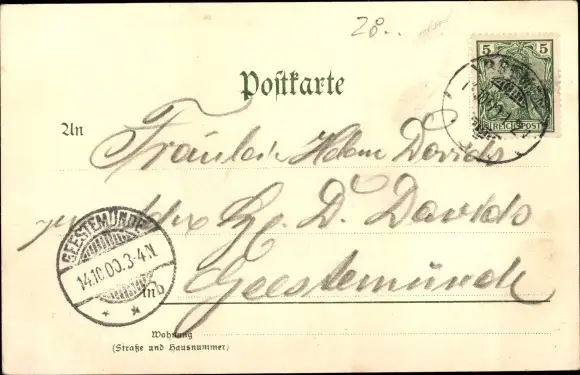 28..
5 5
REICHSPOST
Postkarte
An
Fräulein Helene Davids
Hg. D. Davids
GEESTEMÜNDE
14.10.00.3-4.N
* *
Geestemünde
in
Wohnung
(Straße und Hausnummer)